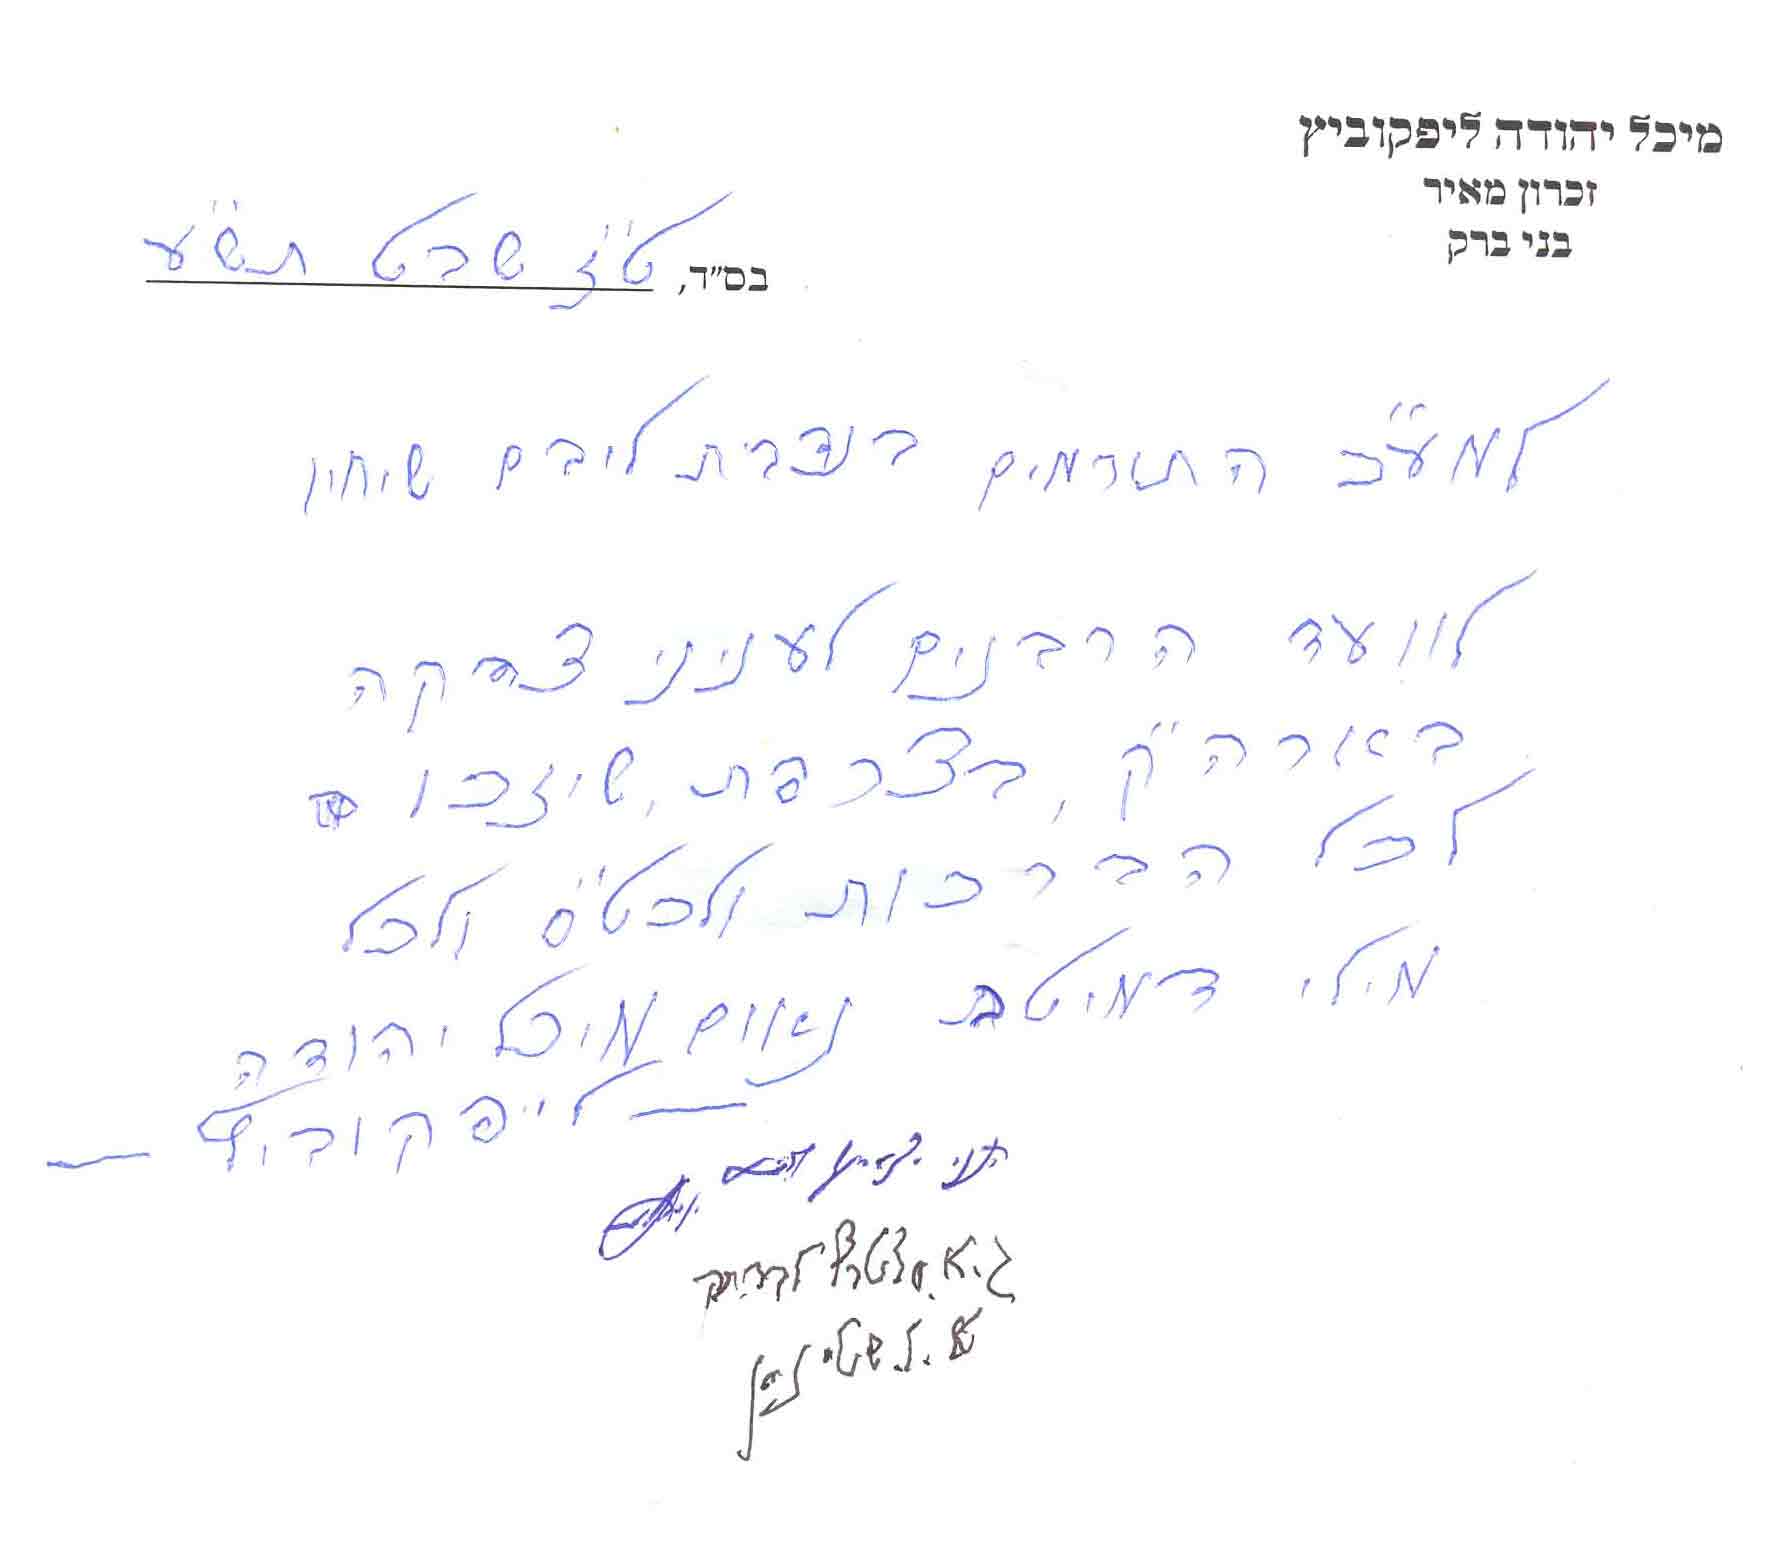 מיכל יהודה ליפקוביץ
זכרון מאיר
בני ברק
בס״ד, ט״ז שבט תש״ע
למע״כ התורמים בנדבת ליבם שיחיו
לוועד הרבנים לעניני צדקה
בארה״ק, בצרפת, שיזכו
לכל הברכות ולכט״ס ולכל
מילי דמיטב נאום מיכל יהודה
— ליפקוביץ —
הנני
ג.א.
א.ל. שטינמן